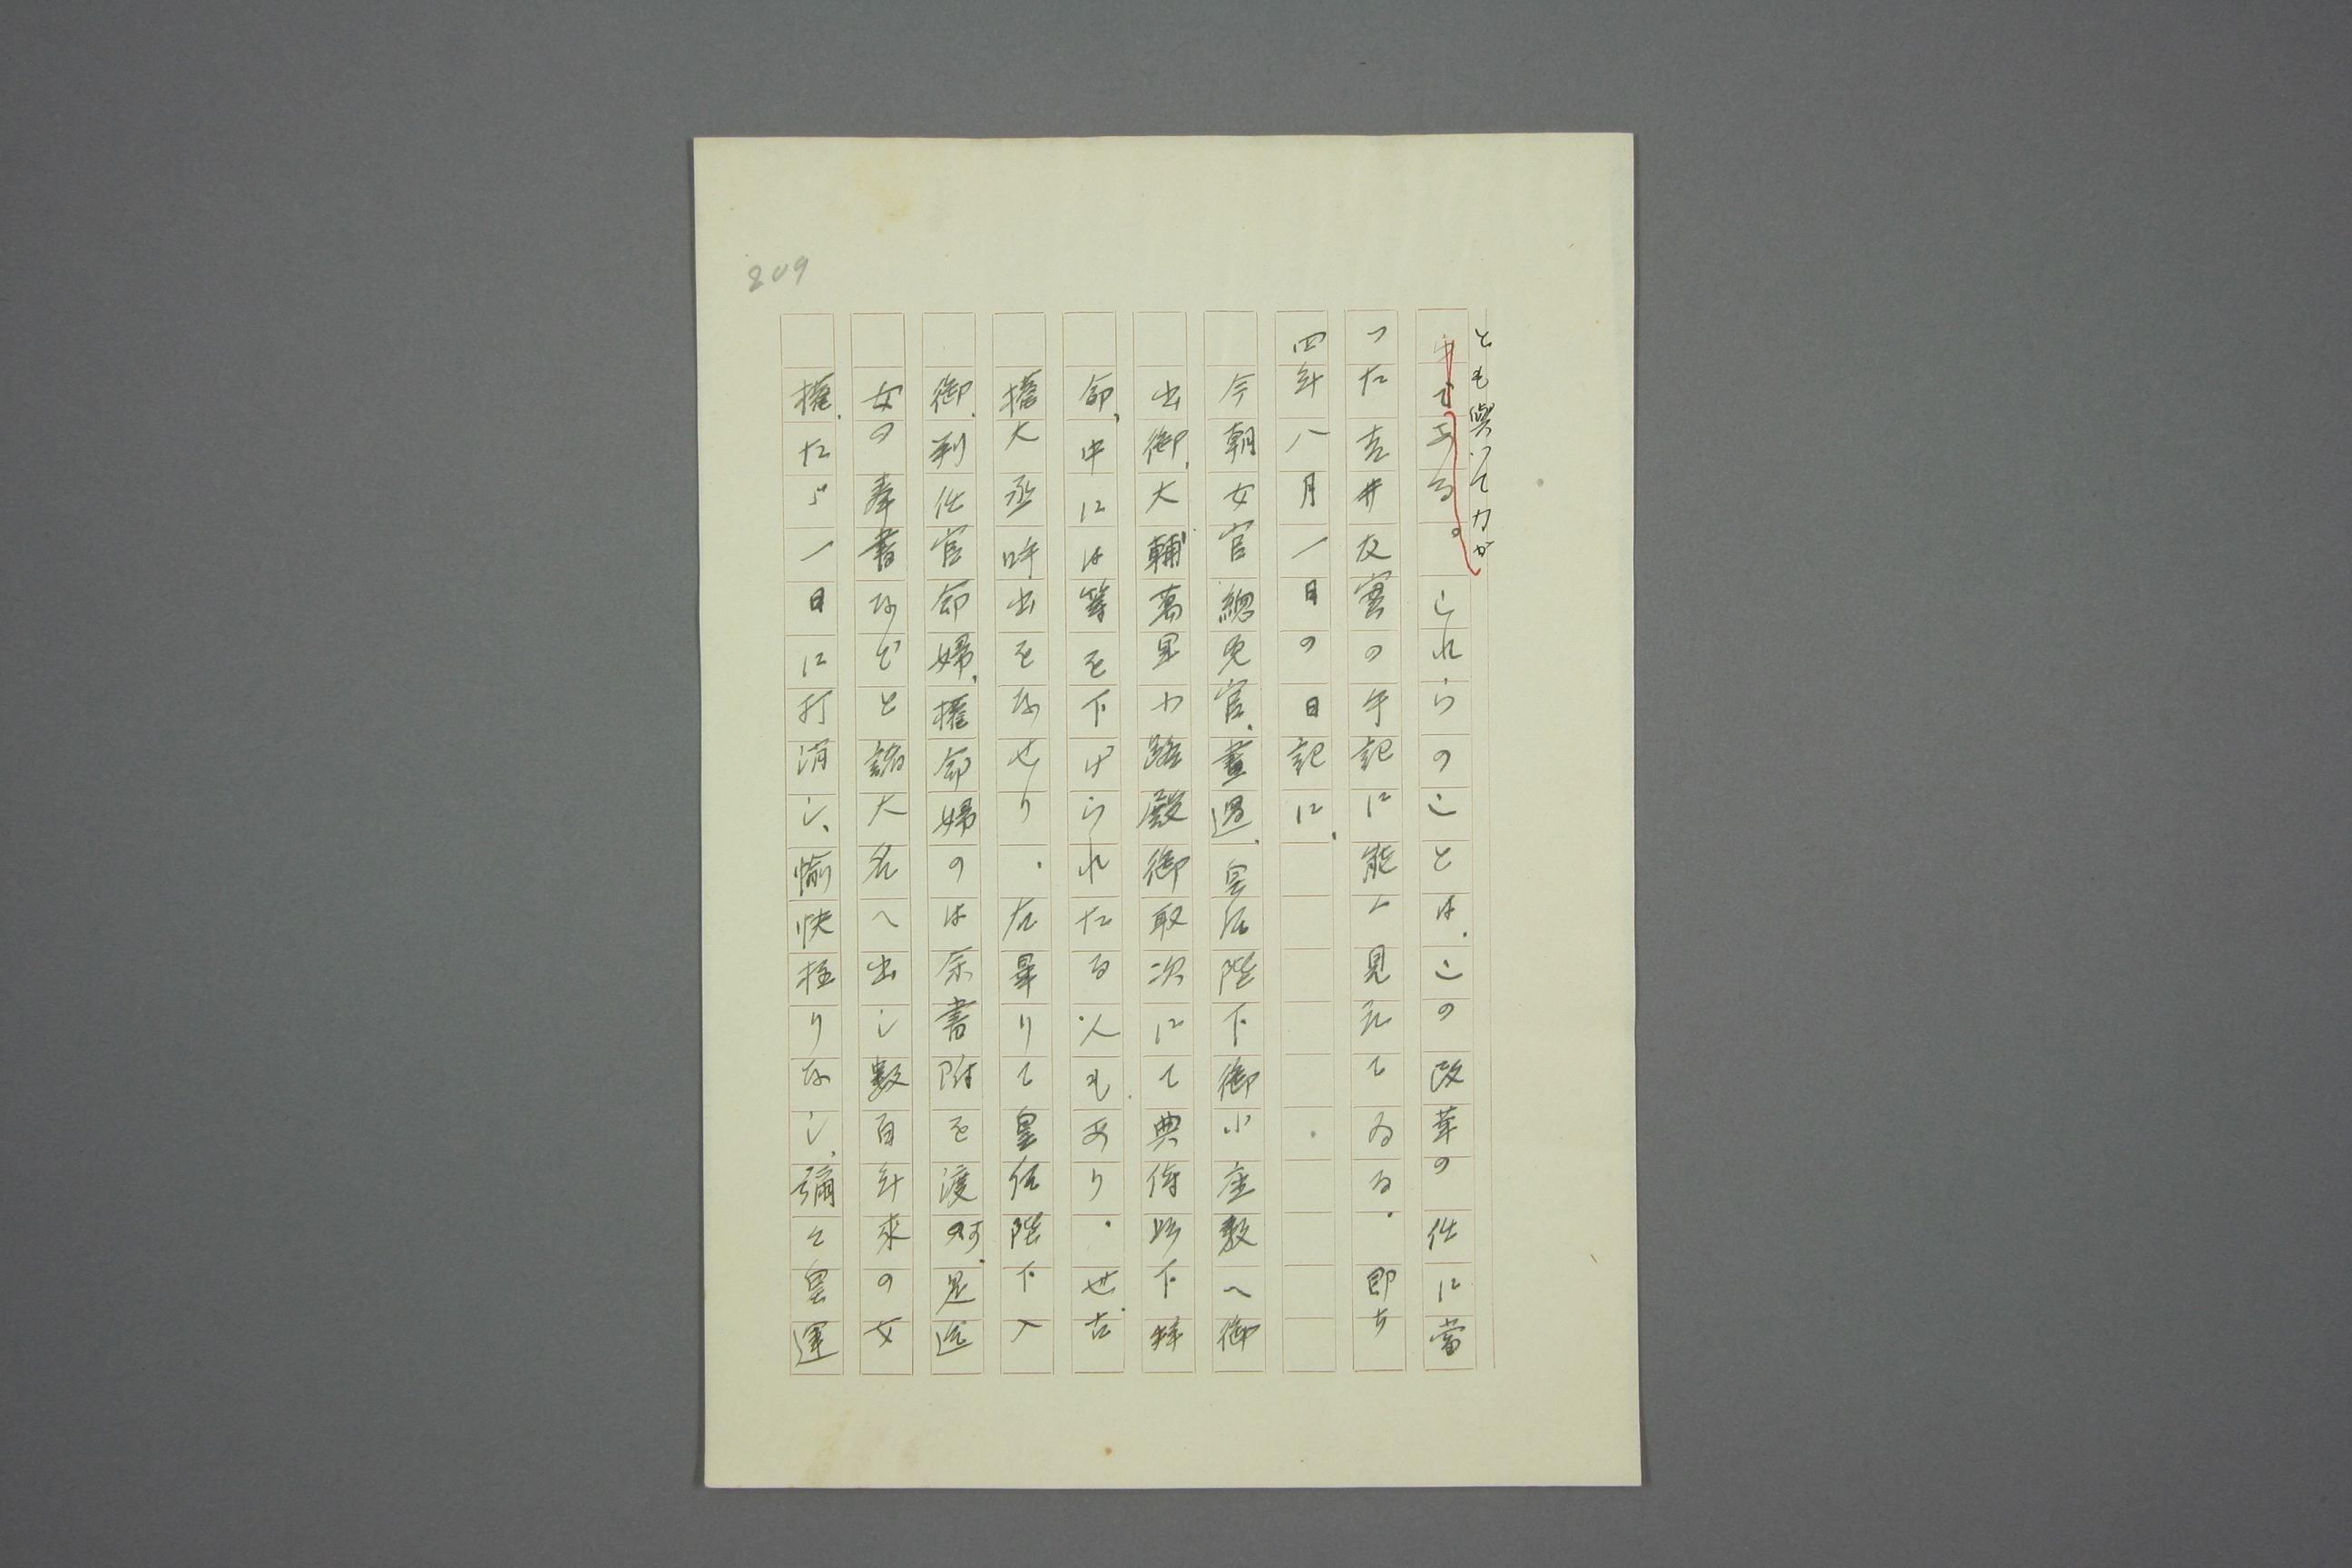 809
とも與って力が
ある。これらのことは、この改革の任に當
つた吉井友實の手記に能く見えてゐる。即ち
四年八月一日の日記に、
今朝女官總免官、晝過、皇后陛下御小座敷へ御
出御、大輔萬里小路殿御取次にて典侍以下拝
命、中には等を下げられたる人もあり。世古
權大丞呼出をなせり。右畢りて皇后陛下入
御、判任官命婦、權命婦のは余書附を渡す、是迄
女の奉書などと諸大名へ出し數百年來の女
權、たゞ一日に打消し、愉快極りなし、彌々皇運